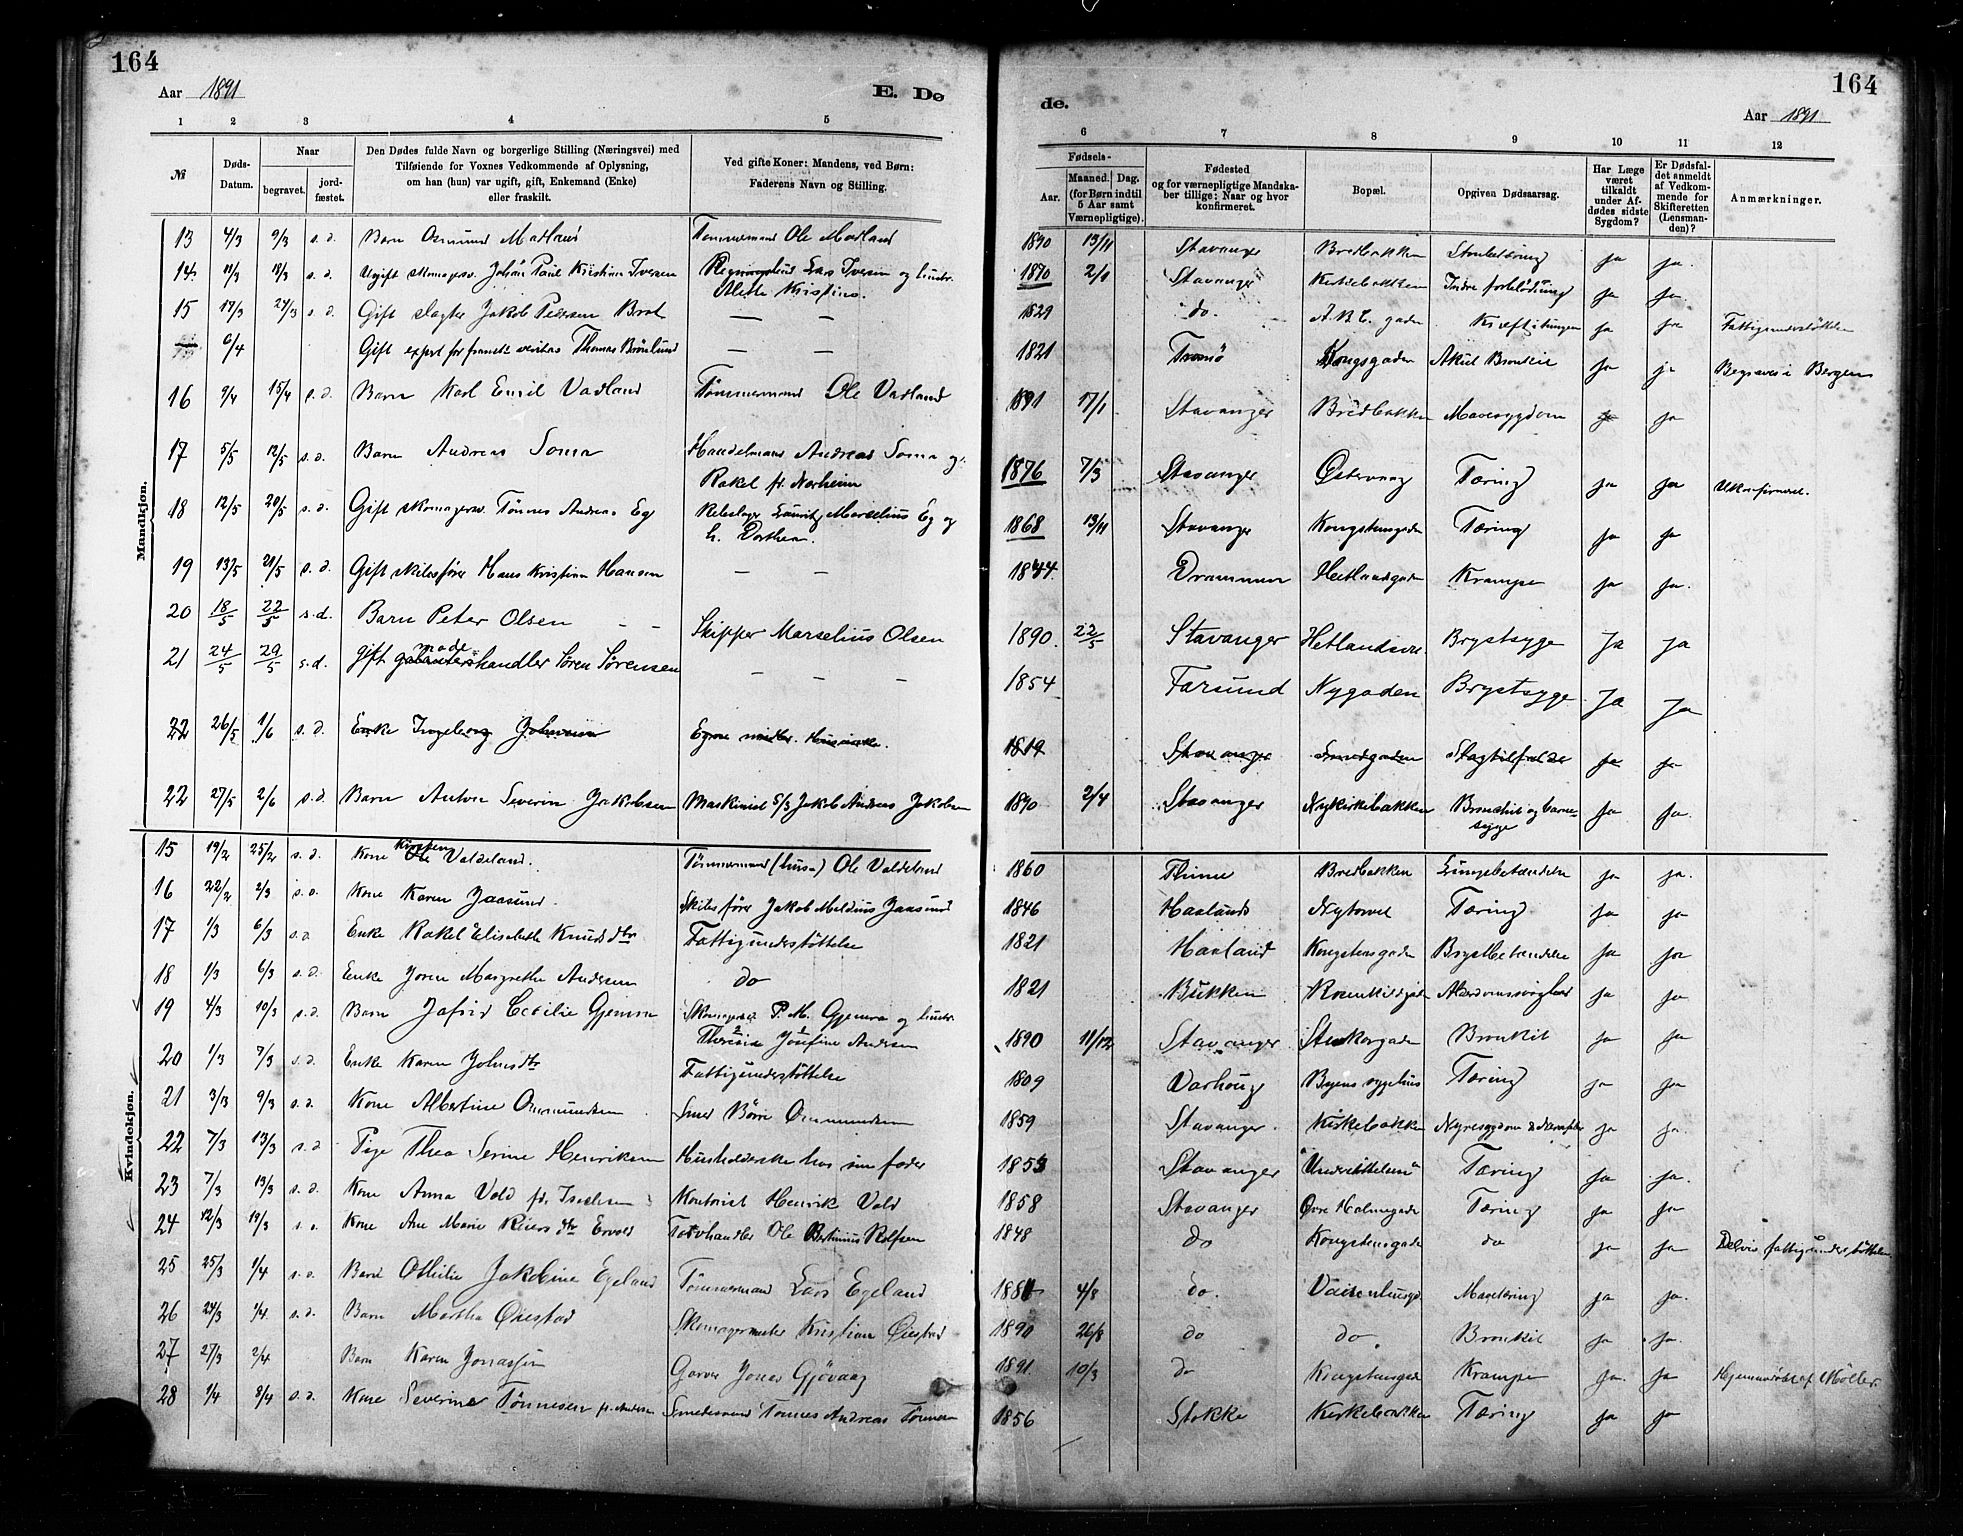 164
Aar 1891
E. Dø
1 2 3 4 5
№
Døds-Datum.
Naar
begravet.
jord-fæstet.
Den Dødes fulde Navn og borgerlige Stilling (Næringsvei) med
Tilføiende for Voxnes Vedkommende af Oplysning,
om han (hun) var ugift, gift, Enkemand (Enke)
eller fraskilt.
Ved gifte Koner: Mandens, ved Børn:
Faderens Navn og Stilling.
Mandkjøn.
13 4/3 9/3 s. d. Barn Osmund Madland Tømmermand Ole Madland
14 11/3 18/3 s. d. Ugift skomagersv. Johan Paul Kristian Iversen Lars Iversen og hustr.
Alette Kristine.
15 17/3 24/3 s. d. Gift slagter Jakob Pedersen Brot — —
6/4 Gift expert for fransk veritas Thomas Brønlund — —
16 9/4 15/4 s. d. Barn Karl Emil Vadland Tømmermand Ole Vadland
17 5/5 12/5 s. d. Barn Andreas Soma Handelsmand Andreas Soma og
Rakel f. Norheim
18 12/5 20/5 s. d. Gift skomagersv. Tønnes Andreas Eg Rebslager Lauritz Marselius Eg og
h. Dorthea.
19 13/5 21/5 s. d. Gift skibsfører Hans Kristian Hansen — —
20 18/5 22/5 s. d. Barn Peter Olsen – – Skipper Marselius Olsen
21 24/5 29/5 s. d. gift galanterihandler mode Søren Sørensen — — —
22 26/5 1/6 s. d. Enke Ingeborg Egne midler.
22 27/5 2/6 s. d. Barn Anton Severin Jakobsen Maskinist S/S Jakob Andreas Jakobsen
Kvindekjøn.
15 19/2 25/2 s. d. Kone Kirsten Ole Valdeland. Tømmermand (husm) Ole Valdeland
16 22/2 2/3 s. d. Kone Karen Jaasund. Skibsfører Jakob Meldius Jaasund
17 1/3 6/3 s. d. Enke Rakel Elisabeth Knudsdtr Fattigunderstøttelse
18 1/3 6/3 s. d. Enke Joren Margrethe Andersen do
19 4/3 10/3 s. d. Barn Jafrid Cecilie Gjemre Skomagersv. P. M. Gjemre og hustr.
Theresia Josefine Andersen
20 1/3 7/3 s. d. Enke Karen Johnsdtr Fattigunderstøttelse
21 3/3 9/3 s. d. Kone Albertine Ommundsen Smed Børre Ommundsen
22 7/3 13/3 s. d. Pige Thea Serine Henriksen Husholderske hos sin fader
23 7/3 13/3 s. d. Kone Anna Vold f. Kontorist Henrik Vold
24 12/3 19/3 s. d. Kone Ane Marie Reiersdtr Torvhandler Ole Bertinius Rolfsen
25 25/3 1/4 s. d. Barn Othilie Jakobine Egeland Tømmermand Lars Egeland
26 24/3 1/4 s. d. Barn Martha Øiestad Skomagermester Kristian Øiestad
27 27/3 2/4 Barn Karen Jonassen Garver Jonas Gjøvaag
28 1/4 8/4 s. d. Kone Severine Tønnesen f. Andersen Smedesvend Tønnes Andreas Tønnesen
164
de.
Aar 1891
6 7 8 9 10 11 12
Fødsels-
Aar.
Maaned.
Dag.
(for Børn indtil
5 Aar samt
Værnepligtige).
Fødested
og for værnepligtige Mandska-
ber tillige: Naar og hvor
konfirmeret.
Bopæl.
Opgiven Dødsaarsag.
Har Læge
været
tilkaldt
under Af-
dødes sidste
Sygdom?
Er Dødsfal-
det anmeldt
af Vedkom-
mende for
Skifteretten
(Lensman-
den)?
Anmærkninger.
1890 13/11 Stavanger Bredbakken Strubetæring ja ja.
1870 2/1 Stavanger Kirkebakken Indre forblødning ja ja.
1829 do. A.B.C. gaden Kræft i tungen ja ja Fattigunderstøttelse
1821 Tromø Kongsgaden Akut Bronkit ja ja Begraves i Bergen
1891 17/1 Stavanger Bredbakken Mavesygdom ja ja
1876 7/3 Stavanger Østervaag Tæring ja ja Ukonfirmeret.
1868 13/11 Stavanger Kongstensgaden Tæring ja ja
1844. Drammen Hetlandsgaden Krampe ja ja.
1890 22/5 Stavanger Hetlandsv. Brystsyge Ja Ja
1854 Farsund Nygaden Brystsyge Ja Ja
1819 Stavanger Smedgaden Slagtilfælde ja ja
1890 2/4 Stavanger Nykirkebakken Bronchit og barne-
syge ja ja.
1860 Thime Bredbakken Lungebetændelse ja ja.
1846 Haaland Nytorvet Tæring ja ja
1821 Haaland Kongstensgaden Brystbetændelse ja ja
1821 Bukken Rosenkildegaden Alderdomssvaghed ja ja
1890 11/12 Stavanger Stenkargaden Bronkit ja ja
1809 Varhoug Byens sygehus Tæring ja ja
1859 Stavanger. Kirkebakken Nyresygdom & Krampe ja ja.
1853 Stavanger Tæring ja ja.
1858 Stavanger Øvre Holmegade Tæring ja ja
1848 do Kongstensgade do ja ja Delvis fattigunderstøttelse
1881 4/8 do. Vaisenhusgd. Mavetæring ja ja.
1890 26/8 do do. Bronkit ja ja.
1891 10/3 do Kongstensgade Krampe ja. ja Hjemmedøbt af Møller.
1856 Stokke Kirkebakken Tæring ja ja